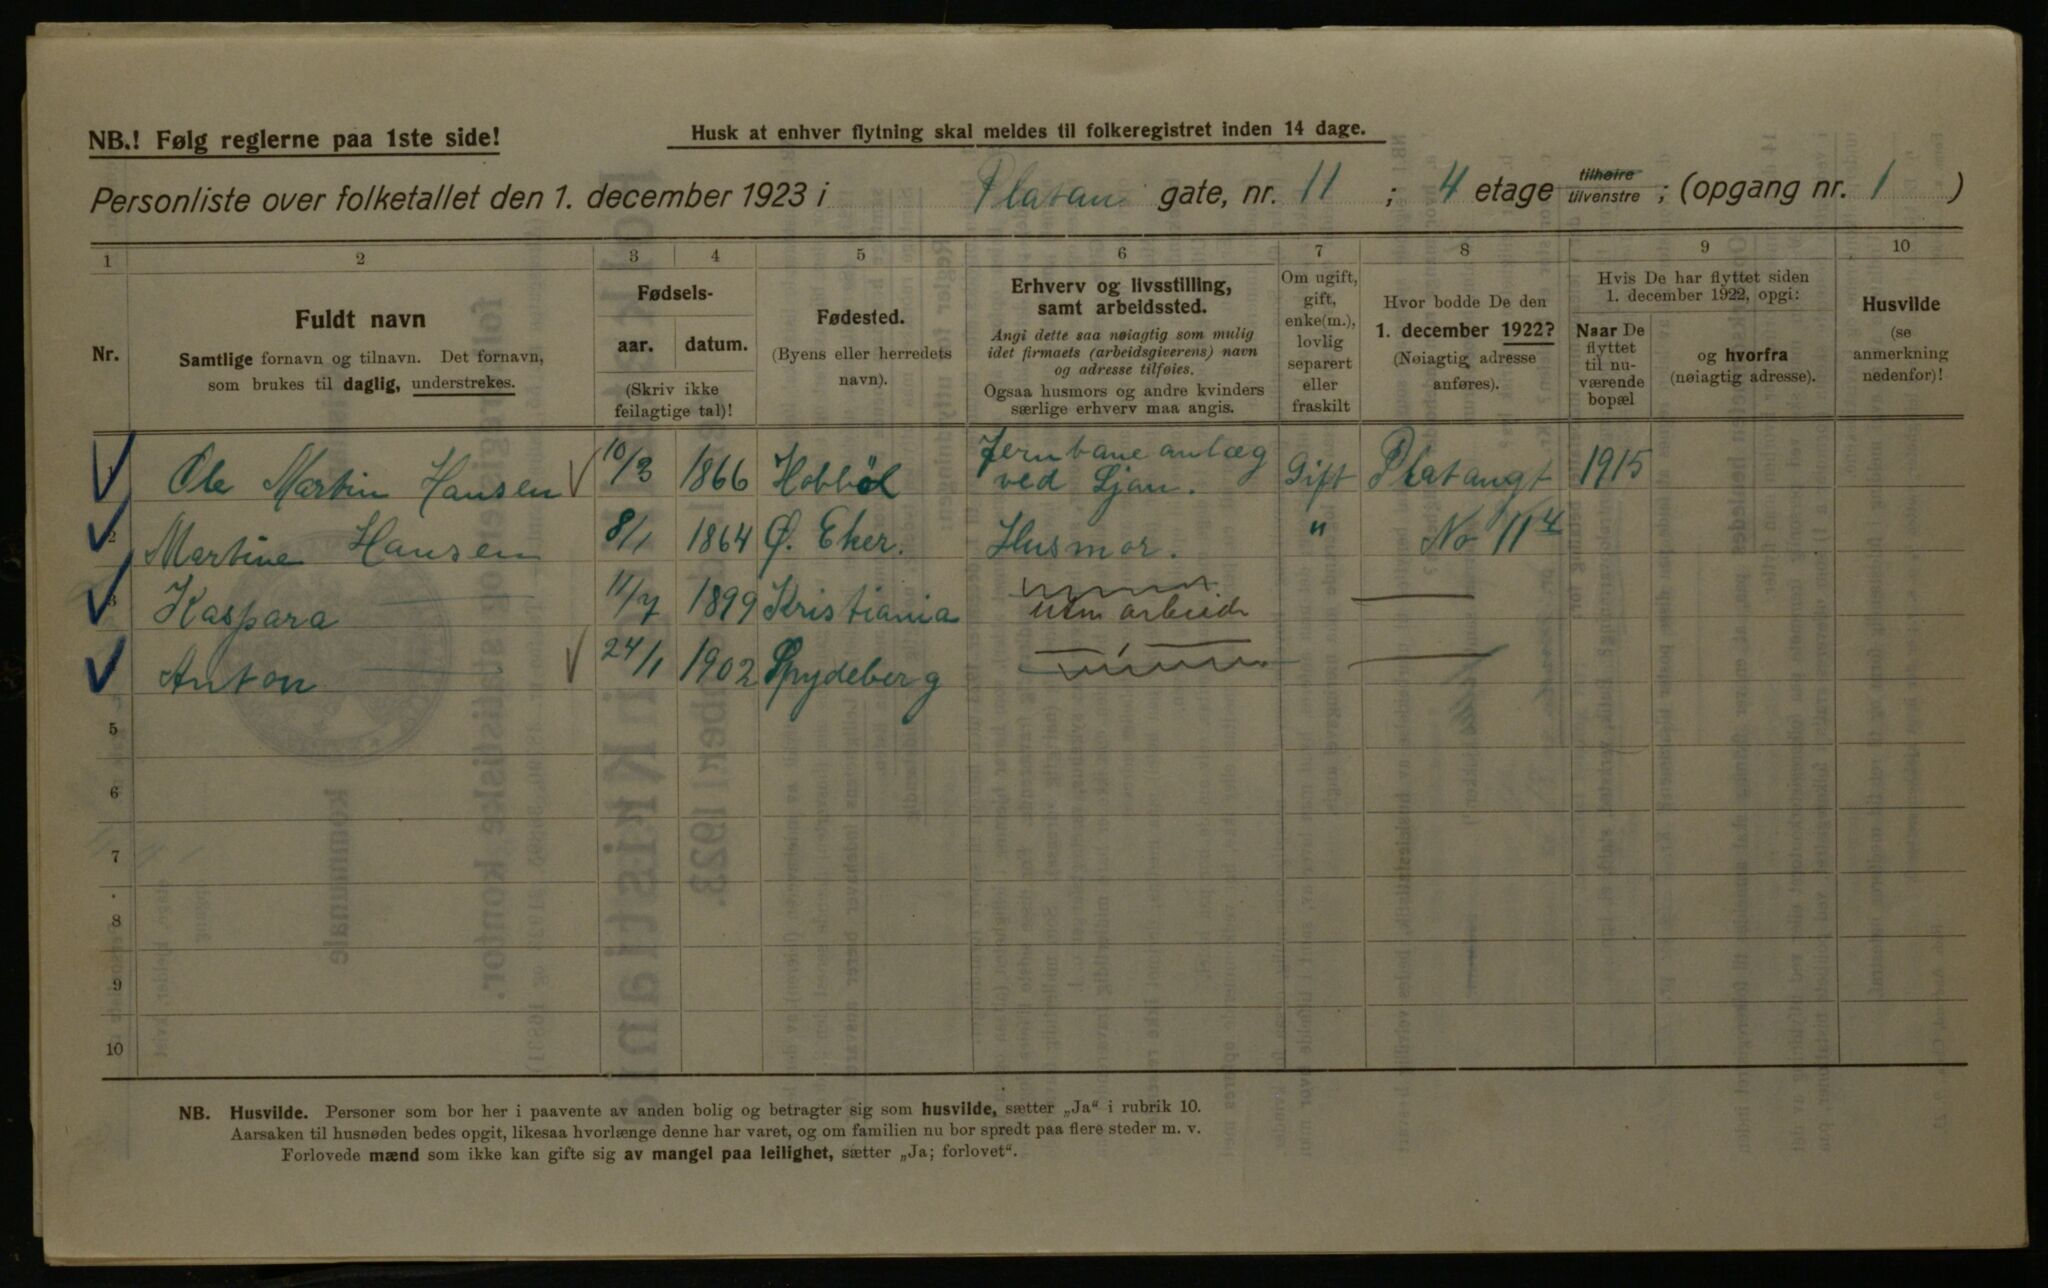 NB.! Følg reglerne paa 1ste side!
Husk at enhver flytning skal meldes til folkeregistret inden 14 dage.
Personliste over folketallet den 1. december 1923 i Platan gate, nr. 11 ; 4 etage tilhøire tilvenstre ; (opgang nr. 1 )
1 2 3 4 5 6 7 8 9 10
Nr.
Fuldt navn
Samtlige fornavn og tilnavn. Det fornavn,
som brukes til daglig, understrekes.
Fødsels-
aar. datum.
(Skriv ikke
feilagtige tal)!
Fødested.
(Byens eller herredets
navn).
Erhverv og livsstilling,
samt arbeidssted.
Angi dette saa nøiagtig som mulig
idet firmaets (arbeidsgiverens) navn
og adresse tilføies.
Ogsaa husmors og andre kvinders
særlige erhverv maa angis.
Om ugift,
gift,
enke(m.),
lovlig
separert
eller
fraskilt
Hvor bodde De den
1. december 1922?
(Nøiagtig adresse
anføres).
Hvis De har flyttet siden
1. december 1922, opgi:
Naar De
flyttet
til nu-
værende
bopæl
og hvorfra
(nøiagtig adresse).
Husvilde
(se
anmerkning
nedenfor)!
1 Ole Martin Hansen 10/3 1866 Hobböl Jernbaneanlæg ved Ljan. Gift Platangt 1915
2 Martine Hansen 8/1 1864 Ø. Eker. Husmor. " No 11 4
3 Kaspara — 11/7 1899 Kristiania utm arbeide —
Anton — 24/1 1902 Spydeberg — " — —
5
6
7
8
9
10
NB. Husvilde. Personer som bor her i paavente av anden bolig og betragter sig som husvilde, sætter „Ja“ i rubrik 10.
Aarsaken til husnøden bedes opgit, likesaa hvorlænge denne har varet, og om familien nu bor spredt paa flere steder m. v.
Forlovede mænd som ikke kan gifte sig av mangel paa leilighet, sætter „Ja; forlovet“.